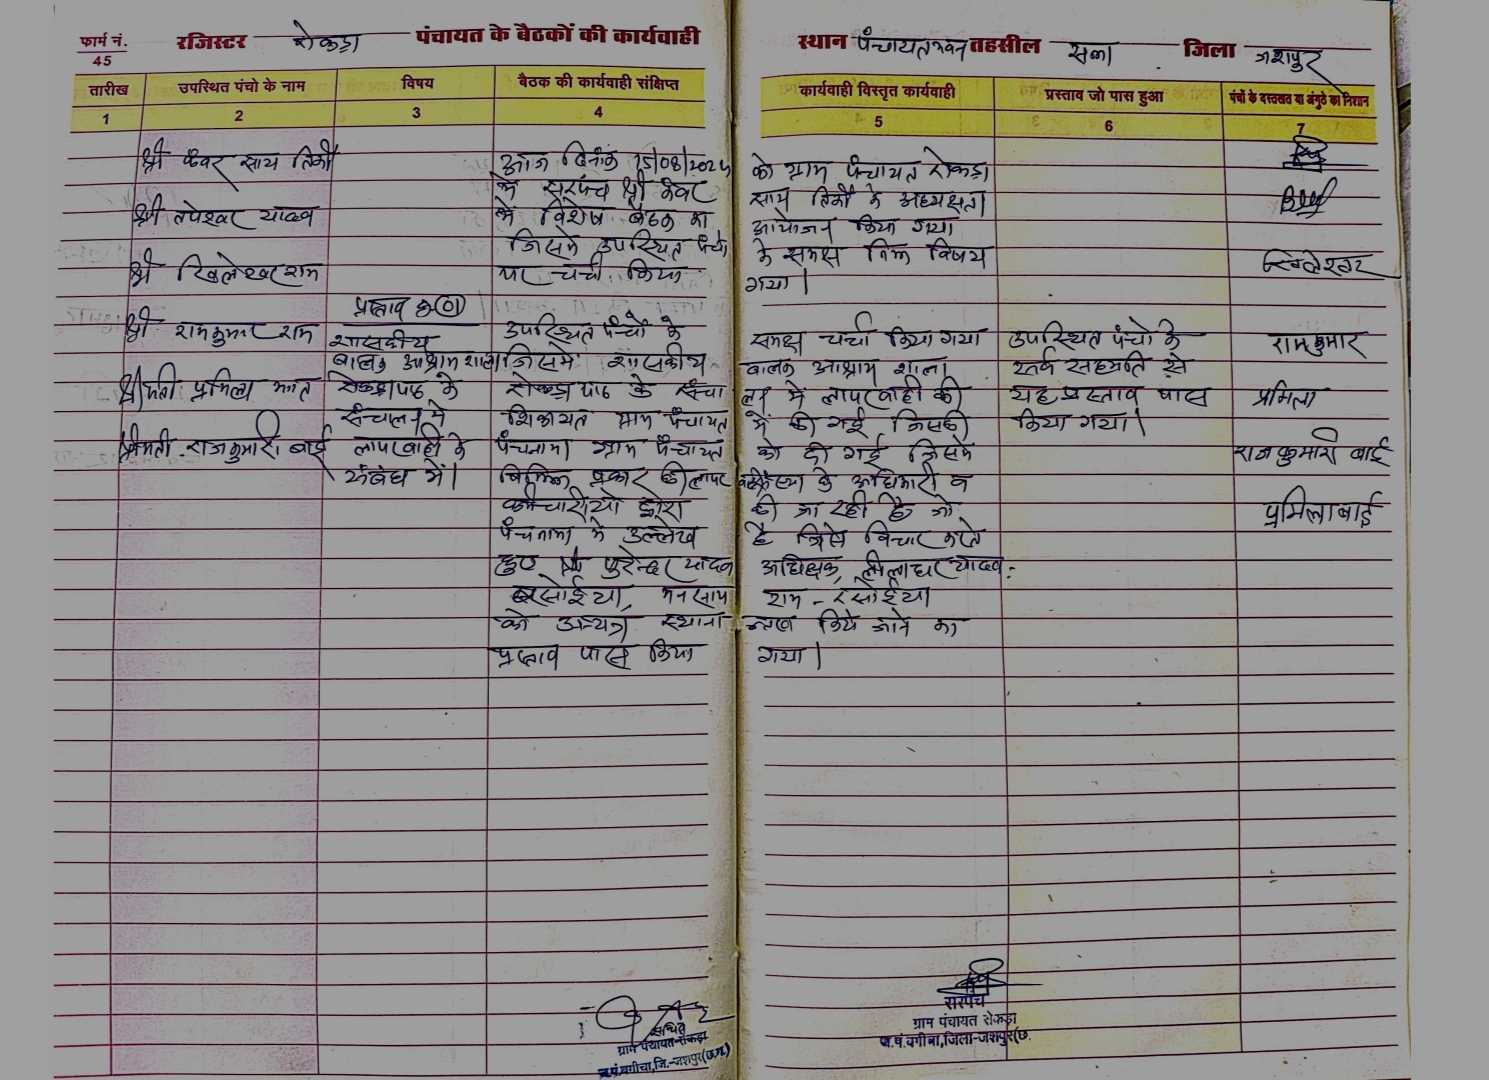 फार्म नं. 45
रजिस्टर रोकड़ा पंचायत के बैठकों की कार्यवाही
स्थान पंचायत भवन तहसील सन्ना जिला जशपुर
तारीख उपस्थित पंचो के नाम विषय बैठक की कार्यवाही संक्षिप्त कार्यवाही विस्तृत कार्यवाही प्रस्ताव जो पास हुआ पंचों के दस्तखत या अंगुठे का निशान
1 2 3 4 5 6 7
श्री कंवर साय तिर्की
श्री तपेश्वर यादव
श्री खिलेश्वर राम
श्री रामकुमार राम
श्रीमती प्रमिला भगत
श्रीमती राजकुमारी बाई
प्रस्ताव क्र 01
शासकीय
बालक आश्राम शाला
रोकड़ापाठ के
संचालन में
लापरवाही के
संबंध में।
आज दिनांक 15/08/2024 को ग्राम पंचायत रोकड़ा
में सरपंच श्री कंवर साय तिर्की के अध्यक्षता
में विशेष बैठक का आयोजन किया गया
जिसमें उपस्थित पंचो के समक्ष निम्न विषय
पर चर्चा किया गया।
उपस्थित पंचों के समक्ष चर्चा किया गया
जिसमें शासकीय बालक आश्राम शाला
रोकड़ा पाठ के संचा लन में लापरवाही की
शिकायत ग्राम पंचायत में की गई जिसकी
पंचनामा ग्राम पंचायत को दी गई जिसमें
विभिन्न प्रकार की लापर वाही संस्था के अधिकारी व
कर्मचारीयो द्वारा की जा रही है जो
पंचनामा में उल्लेख है जिसे विचार करते
हुए पुरेन्दर यादव अधिक्षक, लीलाधर यादव-
रसोईया, मनसाय राम - रसोईया
को अन्यत्र स्थाना न्तरण किये जाने का
प्रस्ताव पास किया गया।
उपस्थित पंचो के
सर्व सहमति से
यह प्रस्ताव पास
किया गया।
खिलेश्वर
रामकुमार
प्रमिला
राजकुमारी बाई
प्रमिला बाई
सचिव
ग्राम पंचायत-रोकड़ा
ज.पं.बगीचा,जि.-जशपुर(छ.ग.)
सरपंच
ग्राम पंचायत रोकड़ा
ज.पं.बगीचा,जिला-जशपुर(छ.